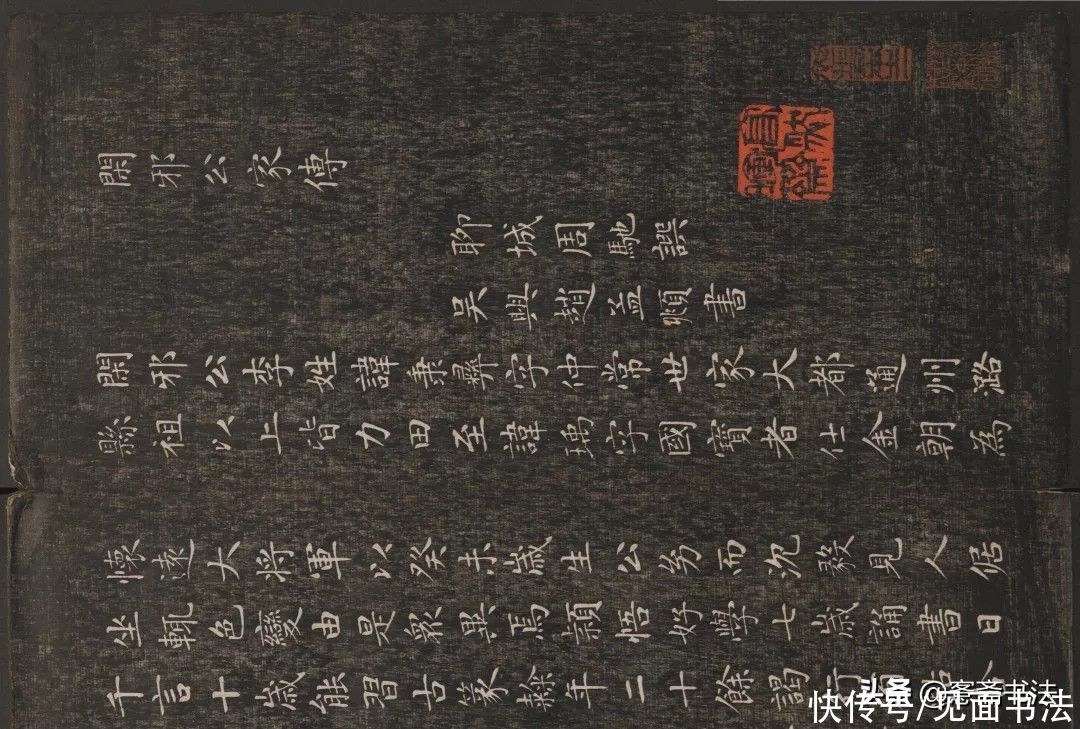 閑邪公家傳
聊城周馳譔
吳興趙孟頫書
閑邪公李姓諱秉彝字仲常世家大都通州潞
縣祖以上皆力田至諱瑀字國寶者仕金朝為
懷遠大將軍以癸未歲生公幼而沉毅見人倨
坐輒色變由是衆異焉穎悟好學七歲誦書日
千言十歲能習古篆隸年二十餘謁
快传号/见面书法